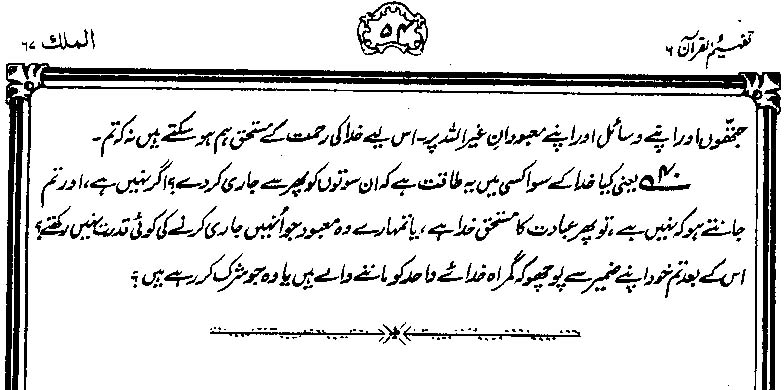 تفہیم القرآن ۶
۵۴
الملک ۶۷
جتھوں اور اپنے وسائل اور اپنے معبودانِ غیر اللہ پر۔ اس لیے خدا کی رحمت کے مستحق ہم ہو سکتے ہیں نہ کہ تم۔
یعنی کیا خدا کے سوا کسی میں یہ طاقت ہے کہ ان سوتوں کو پھر سے جاری کر دے؟ اگر نہیں ہے، اور تم
جانتے ہو کہ نہیں ہے، تو پھر عبادت کا مستحق خدا ہے، یا تمہارے وہ معبود جو اُنہیں جاری کرنے کی کوئی قدرت نہیں رکھتے؟
اس کے بعد تم خود اپنے ضمیر سے پوچھو کہ گمراہ خدائے واحد کو ماننے والے ہیں یا وہ جو شرک کر رہے ہیں؟